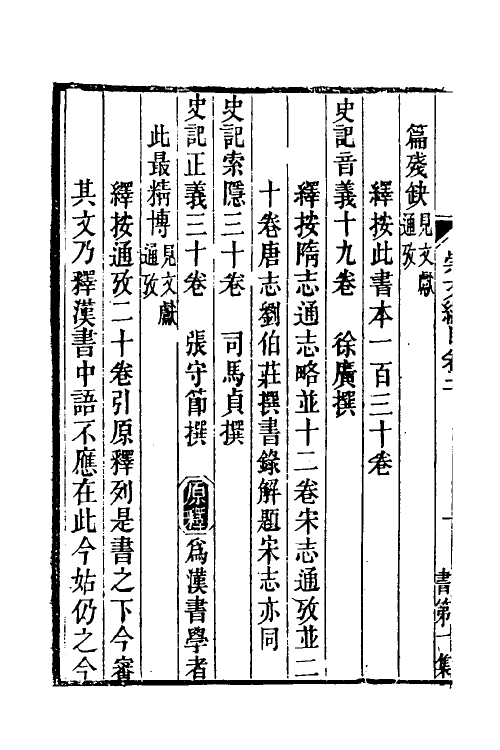 篇殘缺見文獻通攷
繹按此書本一百三十卷
史記音義十九卷　徐廣撰
繹按隋志通志略並十二卷宋志通攷並二
十卷唐志劉伯莊撰書錄解題宋志亦同
史記索隱三十卷　司馬貞撰
史記正義三十卷　張守節撰　原釋爲漢書學者
此最精博見文獻通攷
繹按通攷二十卷引原釋列是書之下今審
其文乃釋漢書中語不應在此今姑仍之今
書第一集